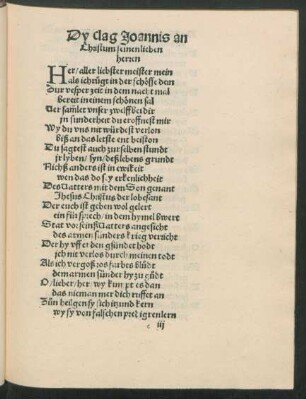 Dy clag Joannis an
Christum seinen lieben
herren
HEr/aller liebster meister mein
als ich rügt in der schösse dein
Zur vesper zeit in dem nacht mal
berat in einem schönen sal
Versamlet vnser zwelff bei dir
in sunderheit du eroffnest mir
Wy du vns nit würdest verlon
biß an das letste ent beiston
Du sagtest auch zur selben stund
jr lyben/syn/deß lebens grundt
Nichß anders ist in ewikeit
wen das do sy erkenlichheit
Des Vatters mit dem Son genant
Jhesus Christus der lobesant
Der euch ist geben wol gelert
ein für spech/in dem hymel bwert
Stat vor seins Vatters angesicht
des armen sanders krieg vericht
Der hy vff erden gsündet hodt
ich nit verlos durch meinen todt
Als ich vergoß ros farbes blüdt
dem armen sünder hy zu gudt
O/lieber/her/wy kunpt es dan
das nieman mer dich rüffet an
Zün heilgen sy sich itzund kern
wy sy von falschen predigren lern
c iij